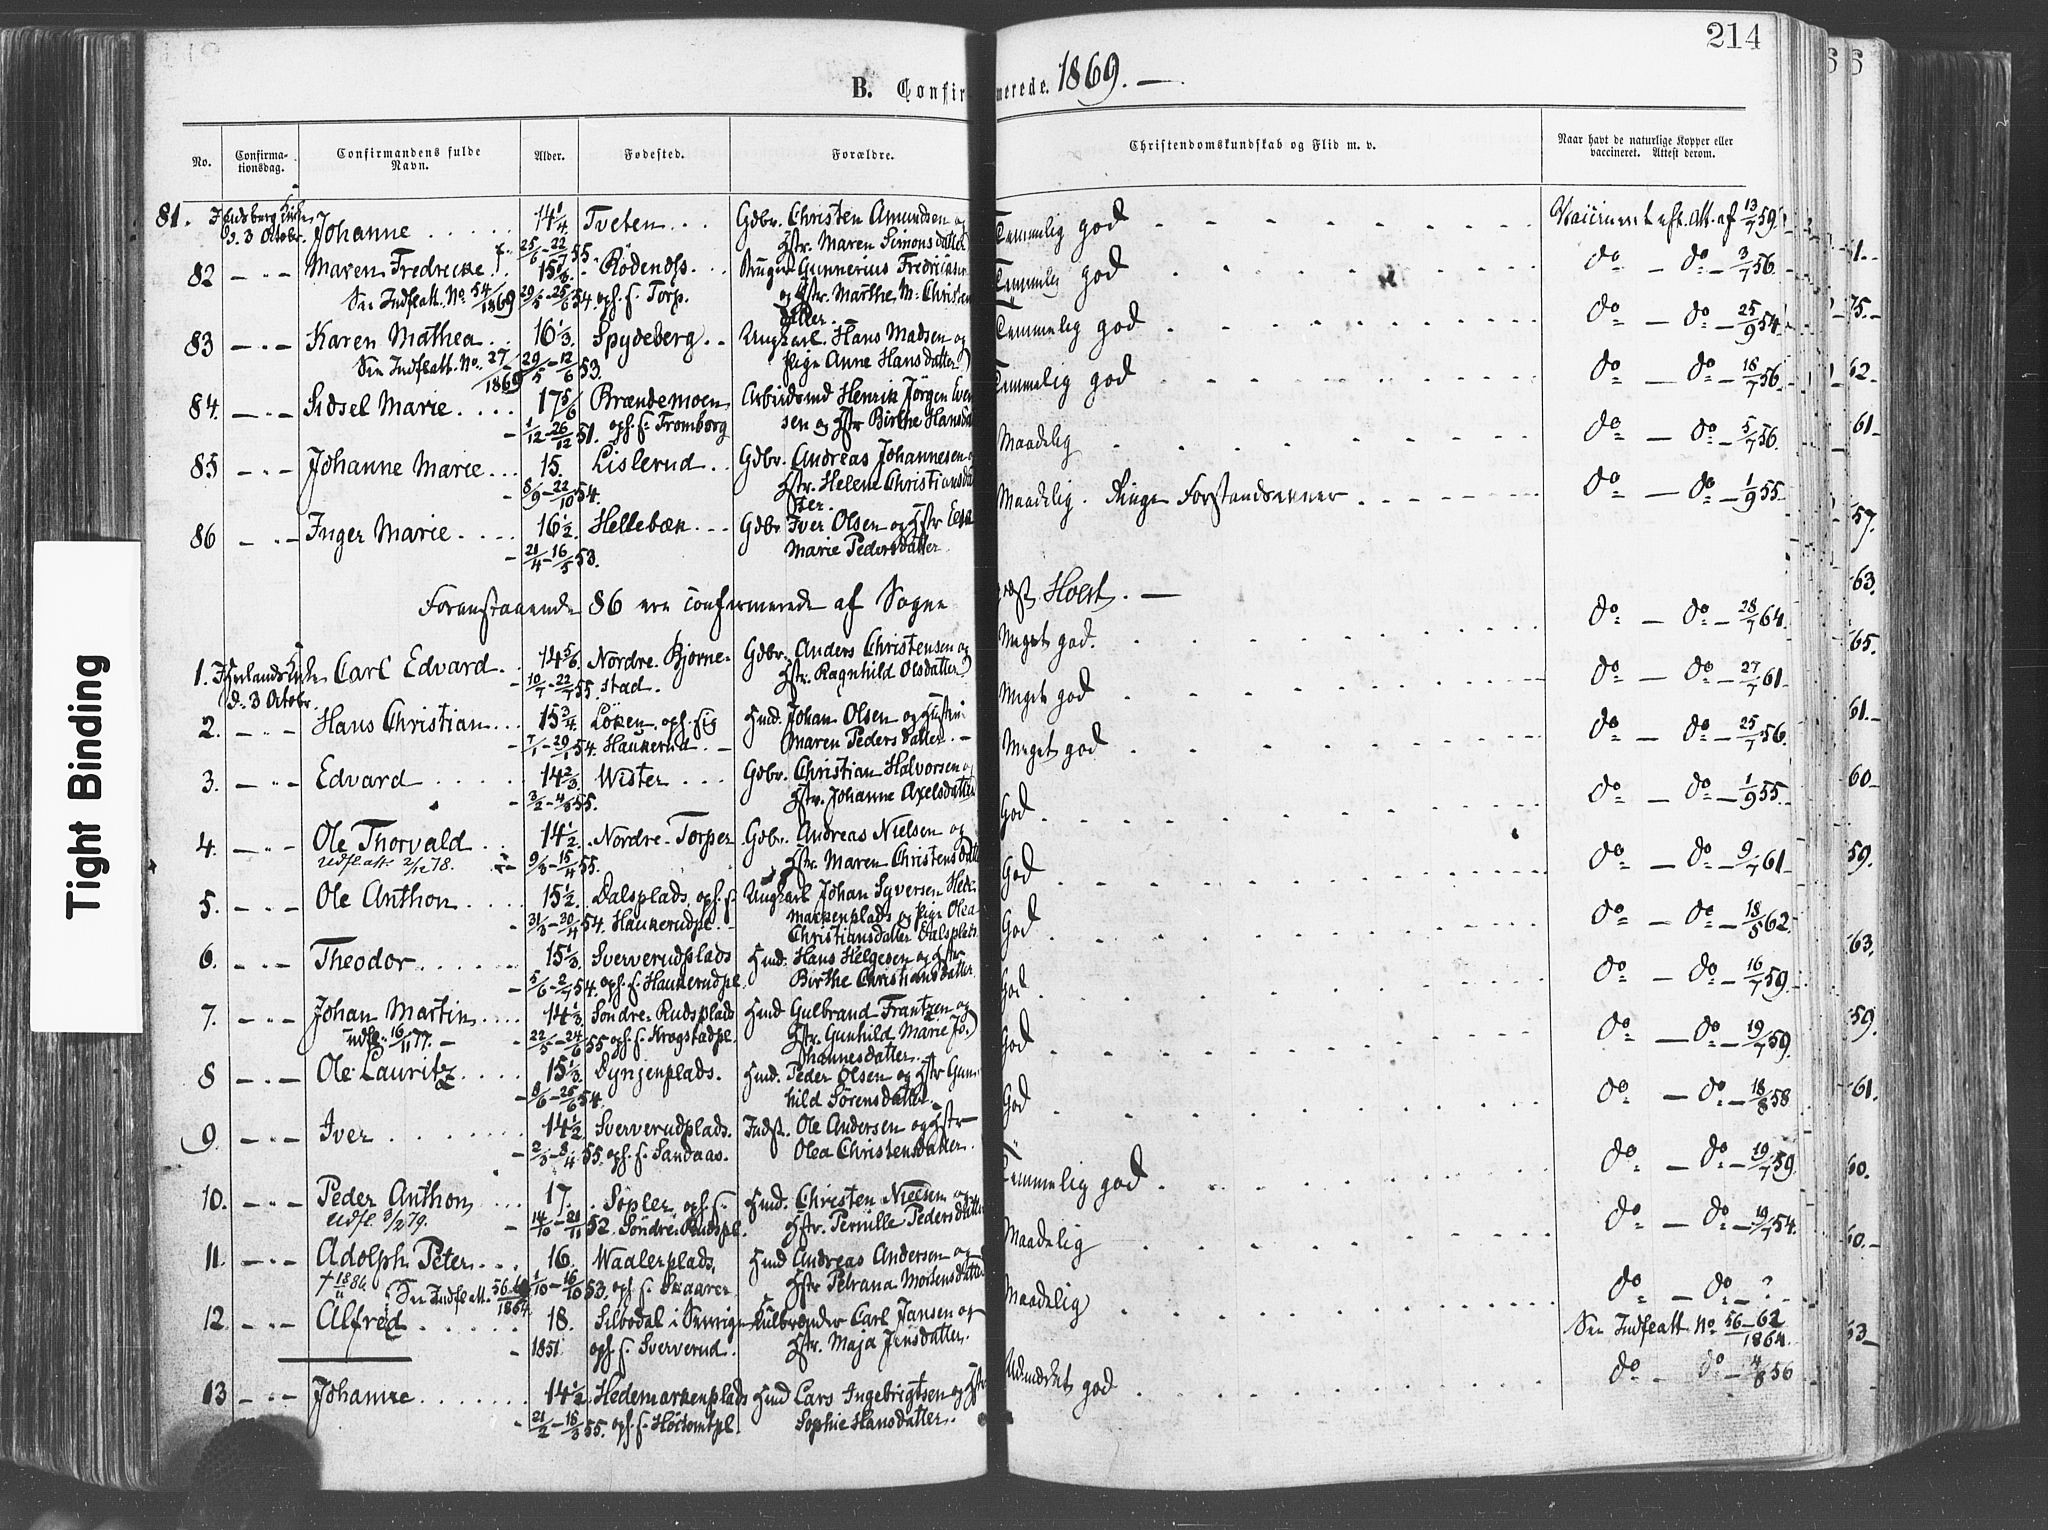 214
B. Confir merede. 1869. —
No. Confirma-tionsdag. Confirmandens fulde Navn. Alder. Fødested. Forældre. Christendomskundskab og Flid m. v. Naar havt de naturlige Kopper eller vaccineret. Attest derom.
81. d. 3 Octobr. Johanne 14 1/4 Tveten Gdbr. Christen Amundsen og Temmelig god 13/7 59.
25/6 – 22/7 55. Hstr. Maren Simonsdatter
82 — " — Maren Fredrecke 15 1/3 Rödends. Gunnerius Fredriksen Temmelig god do – do – 3/7 56.
See Indflatt. No 54/1869 29/5 – 25/6 54. oph. f. Torp. og Hstr. Marthe M. Christens
datter.
83 — " — Karen Mathea 16 1/3 Spydeberg Ungkarl. Hans Madsen og Temmelig god do – do – 25/9 54.
See Indflatt. No. 27/1869 29/5 – 12/6 53. Pige Anne Hansdatter
84. — " — Sidsel Marie 17 5/6 Brændemoen Arbeidsmd Henrik Jörgen Even Temmelig god do – do – 18/7 56.
1/12 – 26/12 51. oph. f. Fromborg sen og Hstr Birthe Hansda
85 — " — Johanne Marie 15. Lislerud Gdbr. Andreas Johannesen Maadelig do – do – 5/7 56.
8/9 – 22/10 54. Hstr. Helene Christiansda
ter.
86 — " — Inger Marie 16 1/2 Hellebæk Gdbr Iver Olsen og Hstr Maadelig. Ringe Forstandsevner do – do – 1/9 55.
21/4 – 16/5 53. Marie Pedersdatter
Foranstaaende 86 ere confirmerede af Sogne Holst. —
1. d. 3 Octobr. Carl Edvard 14 5/6 Nordre Bjorne- Gdbr. Anders Christensen og Meget god. do – do – 28/7 64.
10/7 – 22/7 55. stad. Hstr. Ragnhild Olsdatter
2. — " — Hans Christian 15 3/4 Löken oph. sig Hmd. Johan Olsen og Meget god do – do – 27/7 61.
7/1 – 29/1 54. Haukerud Maren Pedersdatter
3. — " — Edvard 14 2/3 Wister Gdbr. Christian Halvorsen og Meget god do – do – 25/7 56.
55. Hstr. Johanne Axelsdatter
4. — " — Ole Thorvald 14 1/2 Nordre Torper Gdbr. Andreas Nielsen og God do – do – 1/9 55.
Udflatt 2/12 78. 9/3 – 15/4 55. Hstr. Maren Christensdatt
5. — " — Ole Anthon 15 1/2 Dalsplads, oph. f. Ungkarl Johan Syversen Hede God do – do – 9/7 61
31/3 – 30/4 54. Haukerudpl. markenplads og Pige Olea
Christiansdatter Dalsplads
6. — " — Theodor 15 1/3 Sververudplads Hmd. Hans Helgesen og Hstr God do – do – 18/5 62.
5/6 – 2/7 54. oph. f. Haukerudpl. Birthe Christiansdatter
7. — " — Johan Martin 14 1/3 Sondre Rudsplads Hmd Gulbrand Frantzen og God do – do – 16/7 59.
udfl. 16/11 77. 22/5 – 24/6 55 oph. f. Krogstadpl. Hstr. Gunhild Marie Jo-
hannesdatter.
8 — " — Ole Lauritz 15 1/3 Dynjenplads. Hmd. Peder Olsen og Hstr Gun God do – do – 19/7 59.
8/6 – 26/6 54. hild Sörensdatter
9. — " — Iver 14 1/2 Sververudplads. Indst. Ole Andersen og Hstr God do – do – 18/8 58
2/3 – 8/4 55. oph. f. Sandaas. Olea Christensdatter.
10. — " — Peder Anthon 17. Sopler, oph. f. Hmd. Christen Nielsen og Temmelig god do – do – 19/7 59.
Udfl. 3/2 79. 14/10 – 21/11 52. Söndre Rudspl. Hstr. Pernille Pedersdatter
11. — " — Adolph Peter 16. Waalerplads, Hmd Andreas Andersen og Maadelig do – do – 19/7 54.
† 18/11 86 See Indflatt. 56–62/1864 1/10 – 16/10 53. oph. f. Skaarer Hstr Petrana Mortensdatter
12. — " — Alfred 18. Silbodal i Sverrige Kulbrænder Carl Jansen og Maadelig do – do – ?
1851 oph. f. Sververud. Hstr. Maja Jensdatter. See Indflatt No 56–62/1864.
13 — " — Johanne 14 1/2 Hedemarkenplads Hmd Lars Ingebrigtsen og Hstr Udmærket god do – do – 4/8 56
21/2 – 18/3 55. Sophie Hansdatter.
Tight Binding